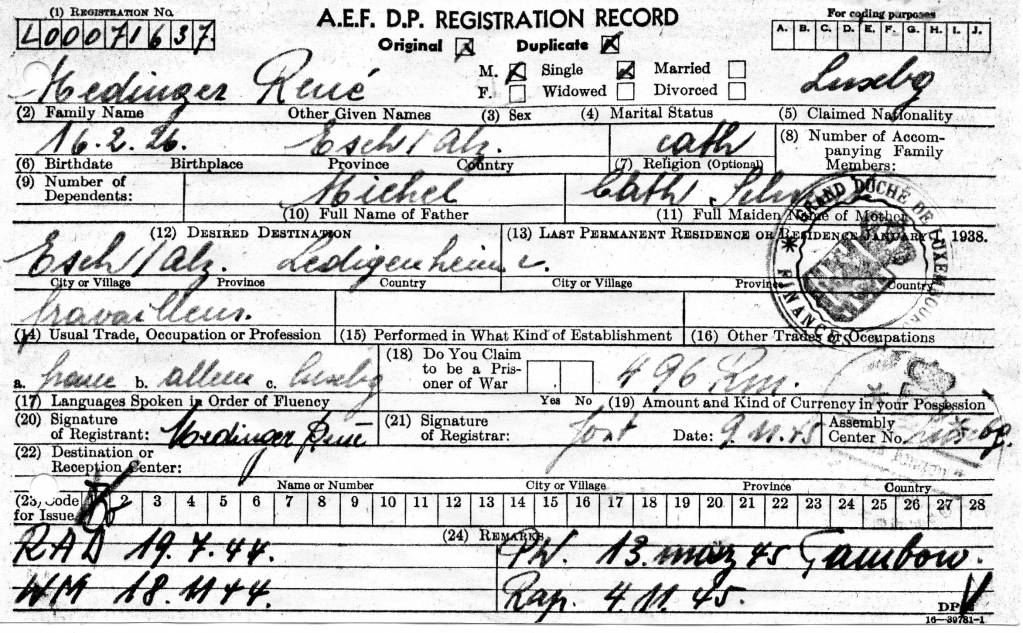 (1) Registration No.
L00071637
A.E.F. D.P. REGISTRATION RECORD
Original Duplicate
For coding purposes
A. B. C. D. E. F. G. H. I. J.
M. Single Married
F. Widowed Divorced
Medinger René Luxebg
(2) Family Name Other Given Names (3) Sex (4) Marital Status (5) Claimed Nationality
16.2.26. Esch/Alz. cath
(6) Birthdate Birthplace Province Country (7) Religion (Optional) (8) Number of Accompanying Family Members:
(9) Number of Dependents:
Michel Cath
(10) Full Name of Father (11) Full Maiden Name of Mother
GRAND DUCHÉ DE LUXEMBOURG
FINANCES
(12) Desired Destination (13) Last Permanent Residence or Residence January 1938.
Esch/Alz. Ledigenheim
City or Village Province Country City or Village Province Country
travailleur.
(14) Usual Trade, Occupation or Profession (15) Performed in What Kind of Establishment (16) Other Trades or Occupations
a. franc b. allem c. luxebg
(17) Languages Spoken in Order of Fluency
(18) Do You Claim to be a Prisoner of War
Yes No
496 Rm.
(19) Amount and Kind of Currency in your Possession
(20) Signature of Registrant: Medinger René
(21) Signature of Registrar: Date: 9.11.45 Assembly Center No.
(22) Destination or Reception Center:
Name or Number City or Village Province Country
(23) Code for Issue 2 3 4 5 6 7 8 9 10 11 12 13 14 15 16 17 18 19 20 21 22 23 24 25 26 27 28
(24) Remarks
RAD 19.7.44. PW. 13. märz 45 Tambow.
WM 18.11 44. Rap. 4.11.45.
DP
16—39781-1